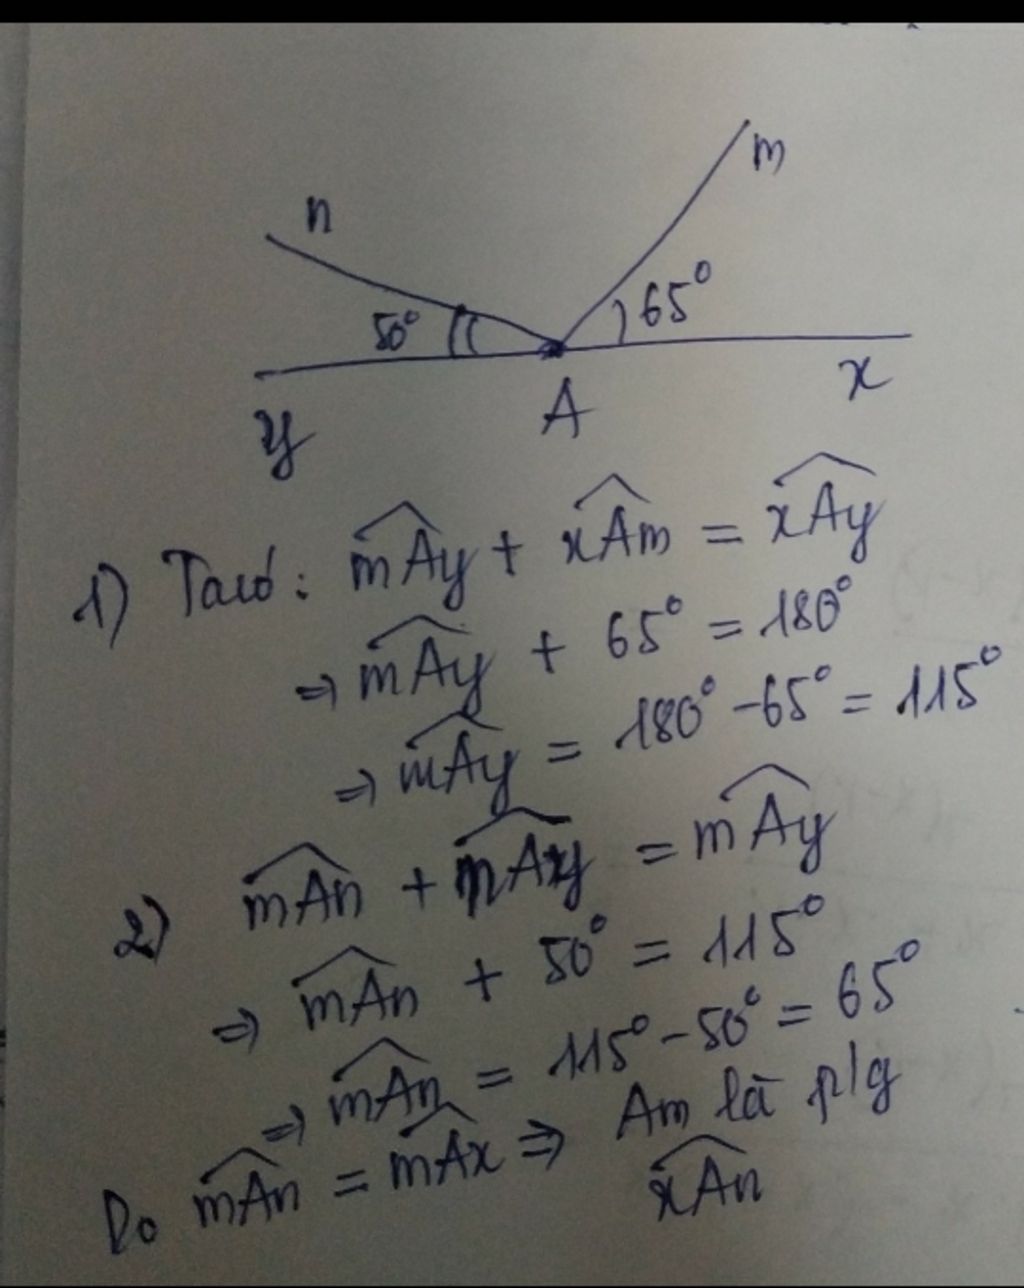 n
m
50°
65°
y
A
x
1) Ta có: m̂Ay + x̂Am = x̂Ay
⇒ m̂Ay + 65° = 180°
⇒ m̂Ay = 180° - 65° = 115°
2) m̂An + n̂Ay = m̂Ay
⇒ m̂An + 50° = 115°
⇒ m̂An = 115° - 50° = 65°
Do m̂An = m̂Ax ⇒ Am là p/g
x̂An